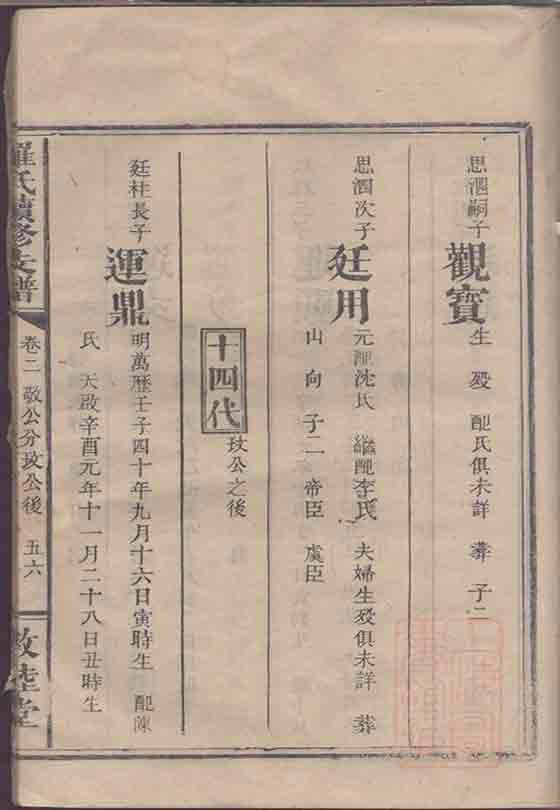 思溷嗣子
觀寳
生 歿 配氏俱未詳 葬 子二
思溷次子
廷用
元配沈氏 繼配李氏 夫婦生歿俱未詳 葬
山 向 子二 帝臣 虞臣
十四代
玫公之後
廷柱長子
運鼎
明萬歷壬子四十年九月十六日寅時生 配陳
氏 天啟辛酉元年十一月二十八日丑時生
羅氏續修支譜
卷二 敬公分玫公後 五六
敦睦堂